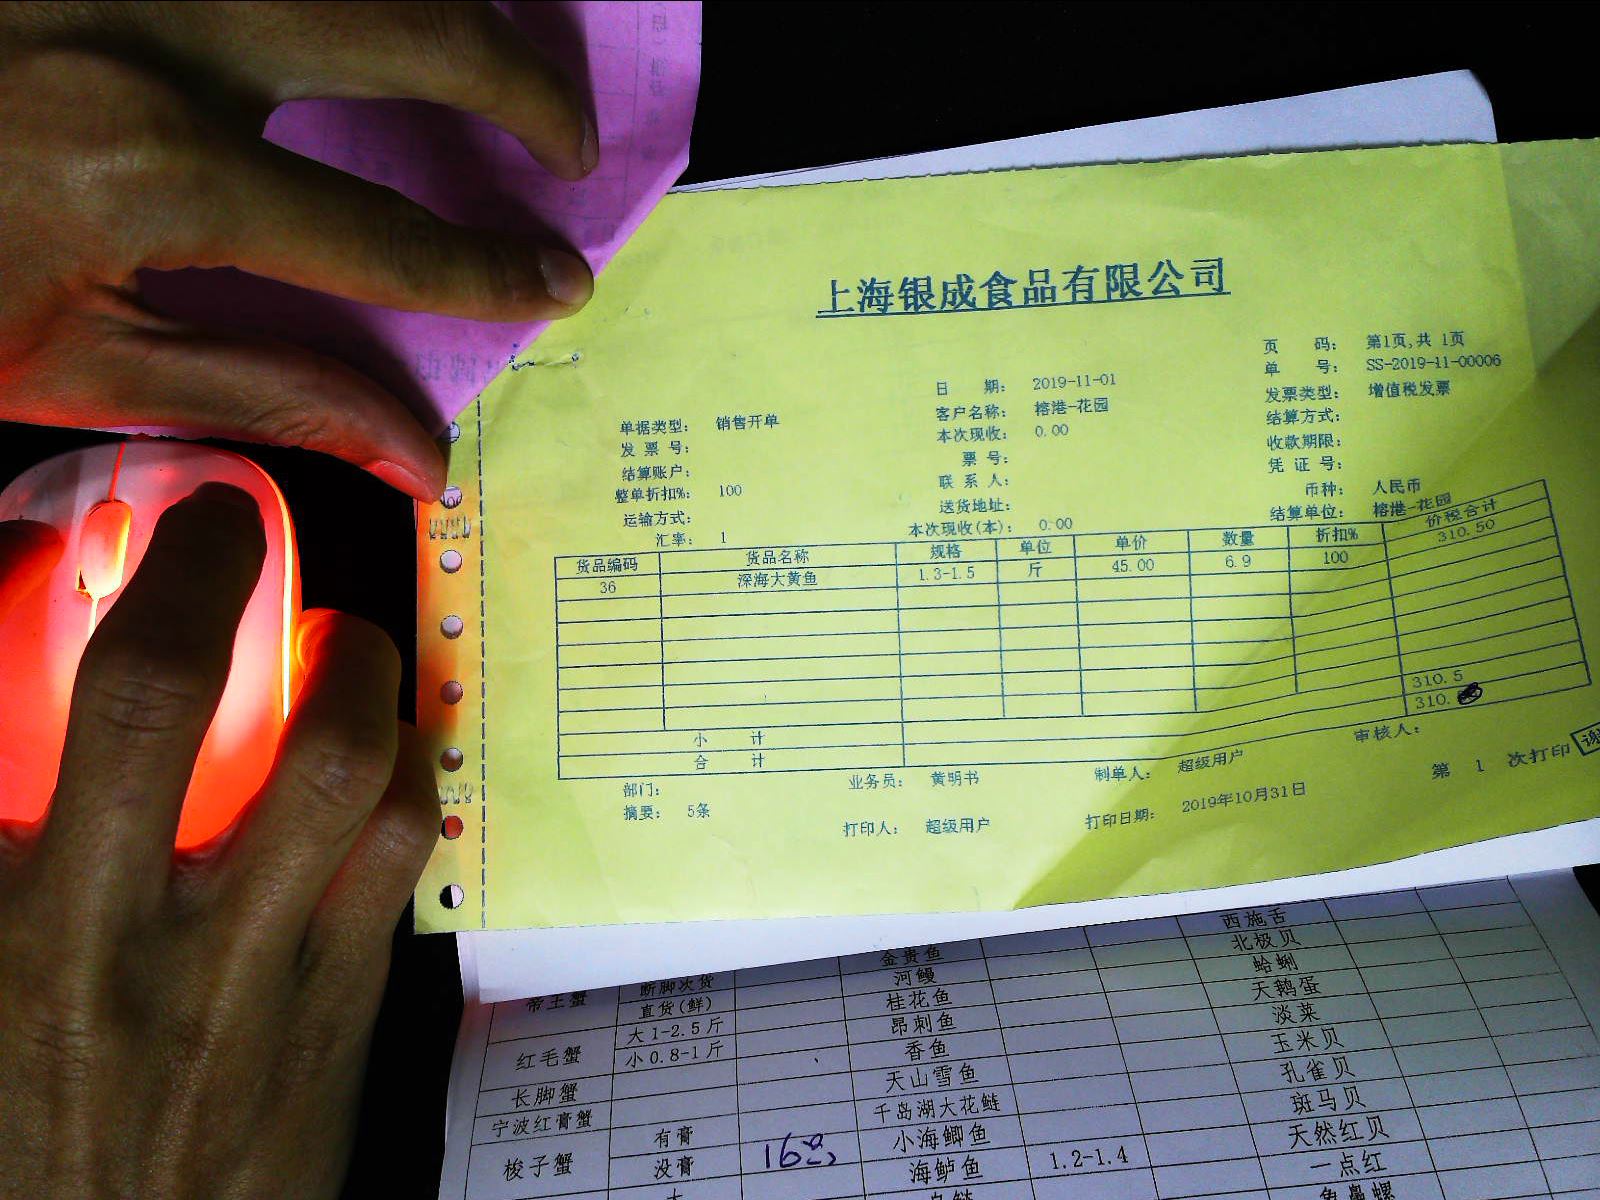 上海银成食品有限公司
页 码： 第1页,共 1页
单 号： SS-2019-11-00006
日 期： 2019-11-01
发票类型： 增值税发票
单据类型： 销售开单
客户名称： 榕港-花园
结算方式：
发 票 号：
本次现收： 0.00
收款期限：
结算账户：
票 号：
凭 证 号：
整单折扣%： 100
联 系 人：
币种： 人民币
运输方式：
送货地址：
结算单位： 榕港-花园
汇率： 1
本次现收(本)： 0.00
货品编码 货品名称 规格 单位 单价 数量 折扣% 价税合计
36 深海大黄鱼 1.3-1.5 斤 45.00 6.9 100 310.50
小 计 310.5
合 计 310.
部门： 业务员： 黄明书 制单人： 超级用户 审核人：
摘要： 5条 打印人： 超级用户 打印日期： 2019年10月31日 第 1 次打印
金贵鱼 西施舌
帝王蟹 断脚次货 河鳗 北极贝
直货(鲜) 桂花鱼 蛤蜊
红毛蟹 大1-2.5斤 昂刺鱼 天鹅蛋
小0.8-1斤 香鱼 淡菜
长脚蟹 天山雪鱼 玉米贝
宁波红膏蟹 千岛湖大花鲢 孔雀贝
梭子蟹 有膏 小海鲫鱼 斑马贝
没膏 海鲈鱼 1.2-1.4 天然红贝
一点红